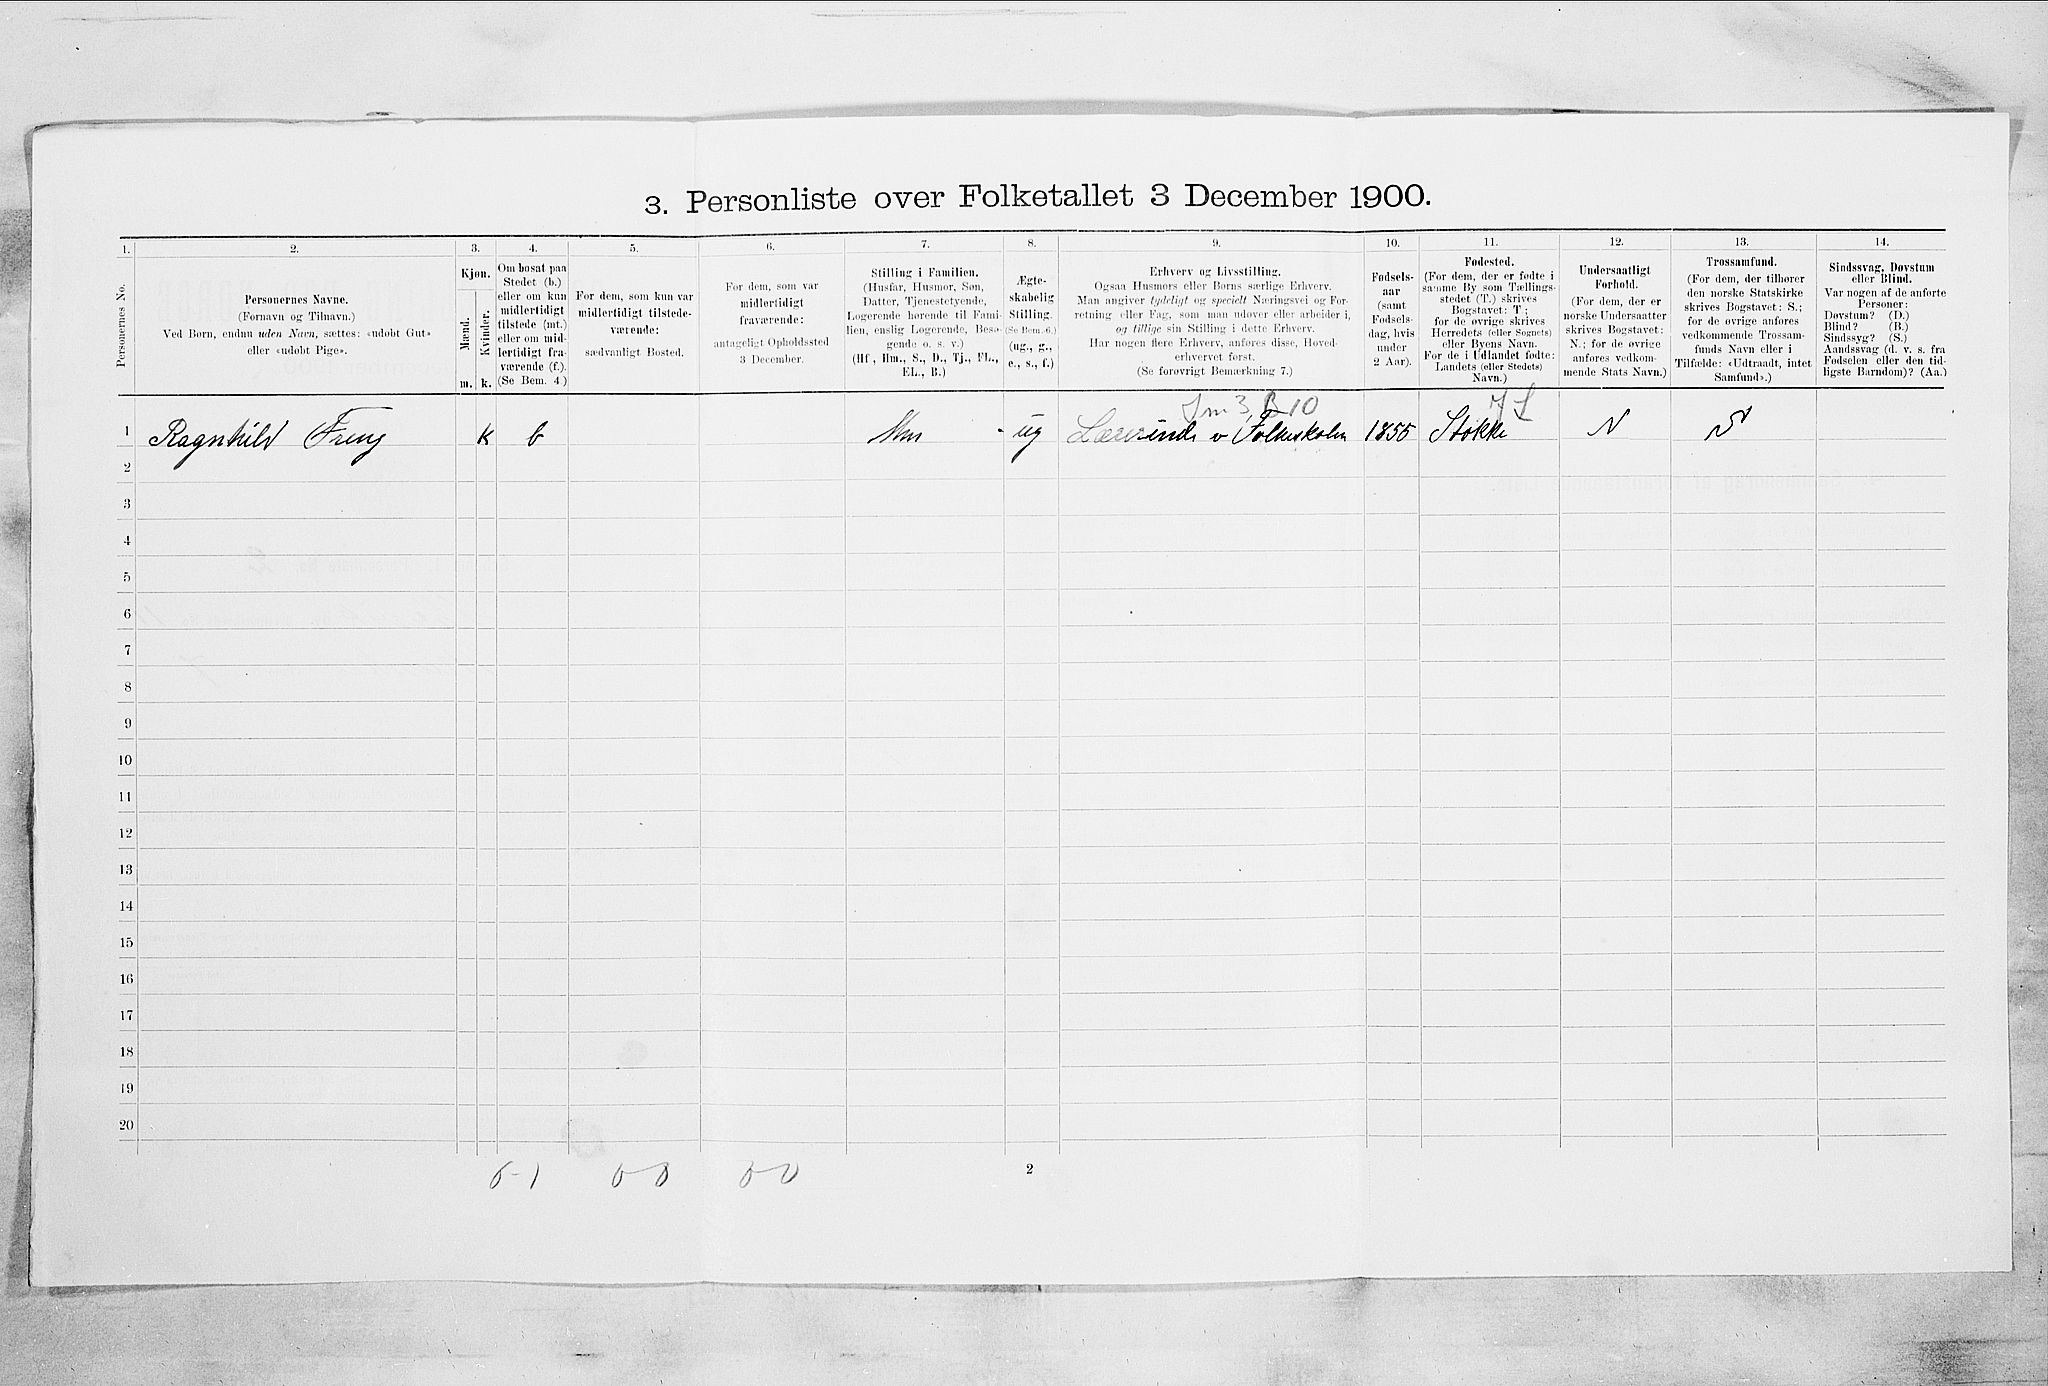 3. Personliste over Folketallet 3 December 1900.
1. 2. 3. 4. 5. 6. 7. 8. 9. 10. 11. 12. 13. 14.
Personernes No.
Personernes Navne.
(Fornavn og Tilnavn.)
Ved Børn, endnu uden Navn, sættes: «udøbt Gut»
eller «udøbt Pige».
Kjøn.
Mænd.
Kvinder.
m. k.
Om bosat paa
Stedet (b.)
eller om kun
midlertidigt
tilstede (mt.)
eller om mid-
lertidigt fra-
værende (f.).
(Se Bem. 4.)
For dem, som kun var
midlertidigt tilstede-
værende:
sædvanligt Bosted.
For dem, som var
midlertidigt
fraværende:
antageligt Opholdssted
3 December.
Stilling i Familien.
(Husfar, Husmor, Søn,
Datter, Tjenestetyende,
Logerende hørende til Fami-
lien, enslig Logerende, Besø-
gende o. s. v.)
(Hf., Hm., S., D., Tj., FL.,
EL., B.)
Ægte-
skabelig
Stilling.
(Se Bem. 6.)
(ug., g.,
e., s., f.)
Erhverv og Livsstilling.
Ogsaa Husmors eller Børns særlige Erhverv.
Man angiver tydeligt og specielt Næringsvei og For-
retning eller Fag, som man udøver eller arbeider i,
og tillige sin Stilling i dette Erhverv.
Har nogen flere Erhverv, anføres disse, Hoved-
erhvervet først.
(Se forøvrigt Bemærkning 7.)
Fødsels-
aar
(samt
Fødsels-
dag, hvis
under
2 Aar).
Fødested.
(For dem, der er fødte i
samme By som Tællings-
stedet (T.) skrives
Bogstavet: T;
for de øvrige skrives
Herredets (eller Sognets)
eller Byens Navn.
For de i Udlandet fødte:
Landets (eller Stedets)
Navn.)
Undersaatligt
Forhold.
(For dem, der er
norske Undersaatter
skrives Bogstavet:
N.; for de øvrige
anføres vedkom-
mende Stats Navn.)
Trossamfund.
(For dem, der tilhører
den norske Statskirke
skrives Bogstavet: S.;
for de øvrige anføres
vedkommende Trossam-
funds Navn eller i
Tilfælde: «Udtraadt, intet
Samfund».)
Sindssvag, Døvstum
eller Blind.
Var nogen af de anførte
Personer:
Døvstum? (D.)
Blind? (B.)
Sindssyg? (S.)
Aandssvag (d. v. s. fra
Fødselen eller den tid-
ligste Barndom)? (Aa.)
1 Ragnhild k b Hm ug Lærerinde v Folkeskolen 1855 Stokke N S
2
3
4
5
6
7
8
9
10
11
12
13
14
15
16
17
18
19
20
0-1 0-0 0-0
2